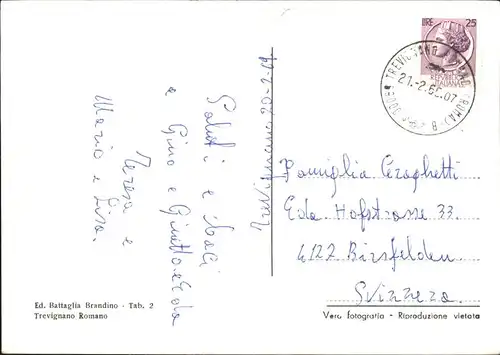 LIRE 25
REPUBBLICA
ITALIANA
TREVIGNANO
(ROMA) B
21.-2.6 .07
Trevignano 20-2-69
Saluti e baci
a Gino e Ginetto e Eda
Teresa e
Mario e Lisa.
Famiglia Ceraghetti
Eda. Hofstrasse 33.
4127 Birsfelden
Svizzera.
Ed. Battaglia Brandino - Tab. 2
Trevignano Romano
Vera fotografia - Riproduzione vietata